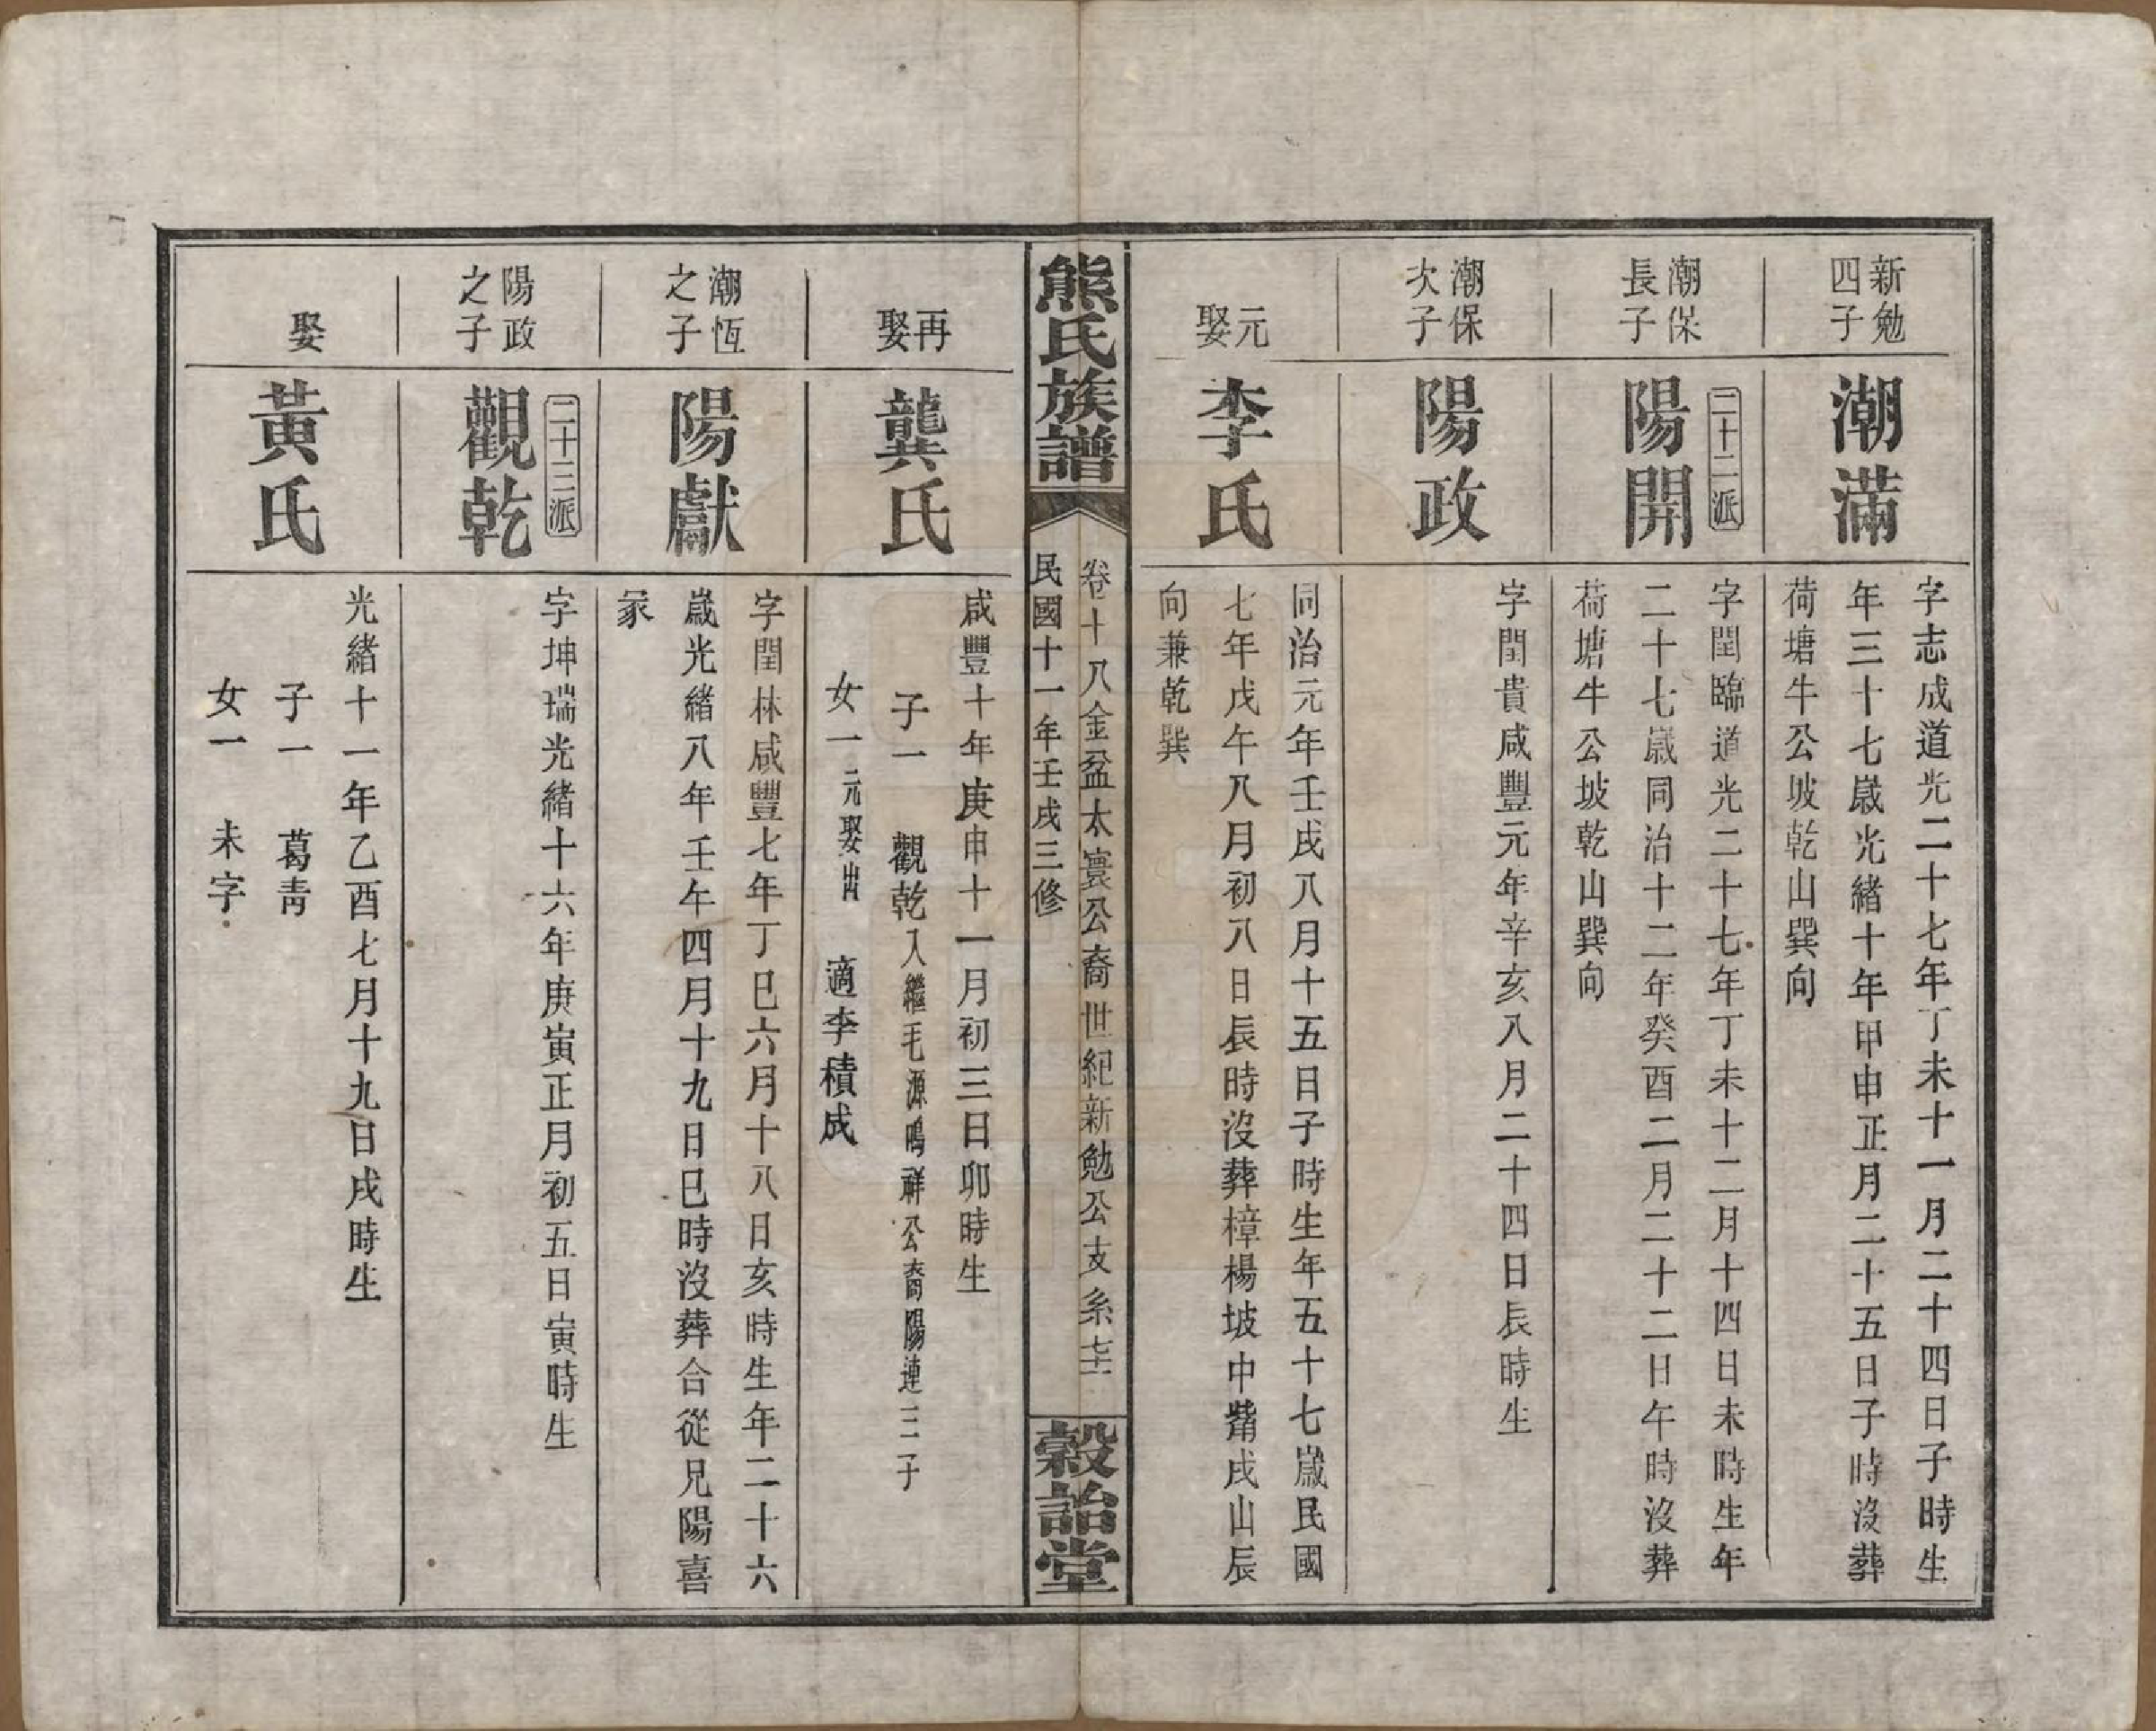 新勉
四子
潮滿
字志成道光二十七年丁未十一月二十四日子時生
年三十七歲光緒十年甲申正月二十五日子時沒葬
荷塘牛公坡乾山巽向
潮保
長子
二十二派
陽開
字閏臨道光二十七年丁未十二月十四日未時生年
二十七歲同治十二年癸酉二月二十二日午時沒葬
荷塘牛公坡乾山巽向
潮保
次子
陽政
字閏貴咸豐元年辛亥八月二十四日辰時生
元
娶
李氏
同治元年壬戌八月十五日子時生年五十七歲民國
七年戊午八月初八日辰時沒葬樟楊坡中觜戌山辰
向兼乾巽
熊氏族譜
卷十八金盆太寰公裔世紀新勉公支系
民國十一年壬戌三修
穀詒堂
再
娶
龔氏
咸豐十年庚申十一月初三日卯時生
子一 觀乾入繼毛源鳴祥公裔陽連三子
女一元娶出 適李積成
潮恆
之子
陽獻
字閏林咸豐七年丁巳六月十八日亥時生年二十六
歲光緒八年壬午四月十九日巳時沒葬合從兄陽喜
冢
陽政
之子
二十三派
觀乾
字坤瑞光緒十六年庚寅正月初五日寅時生
娶
黃氏
光緒十一年乙酉七月十九日戌時生
子一 葛靑
女一 未字